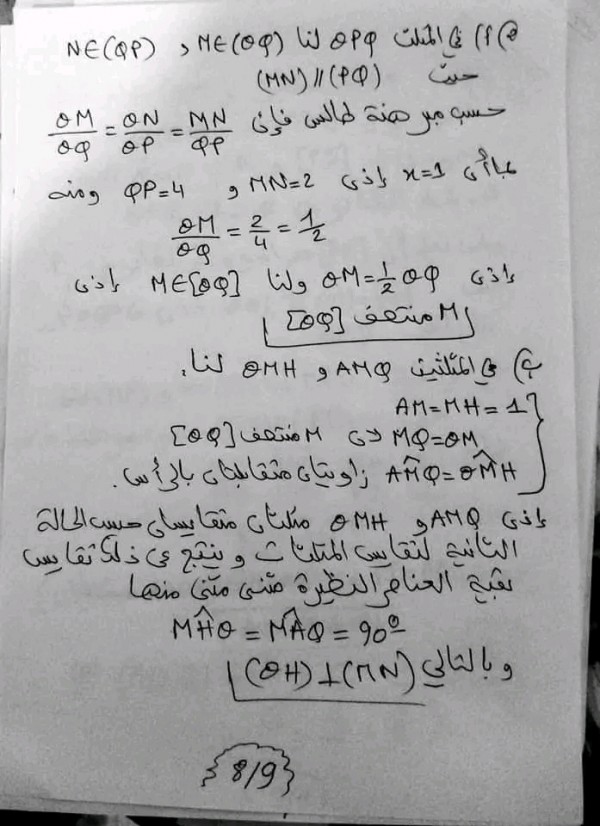 5) أ) في المثلث OPQ لنا M∈(OQ) و N∈(QP)
حيث (MN)//(PQ)
حسب مبرهنة طالس فإن OM/OQ = ON/OP = MN/QP
بما أن x=1 إذن MN=2 و QP=4 ومنه
OM/OQ = 2/4 = 1/2
إذن OM=1/2 OQ ولنا M∈[OQ] إذن
M منتصف [OQ]
ب) في المثلثين AMQ و OMH لنا:
AM=MH=1
MQ=OM لأن M منتصف [OQ]
AM̂Q=OM̂H زاويتان متقابلتان بالرأس.
إذن AMQ و OMH مثلثان متقايسان حسب الحالة
الثانية لتقايس المثلثات و ينتج عن ذلك تقايس
بقية العناصر النظيرة مثنى مثنى منها
MĤO = MÂQ = 90°
و بالتالي (OH)⊥(MN)
8/9